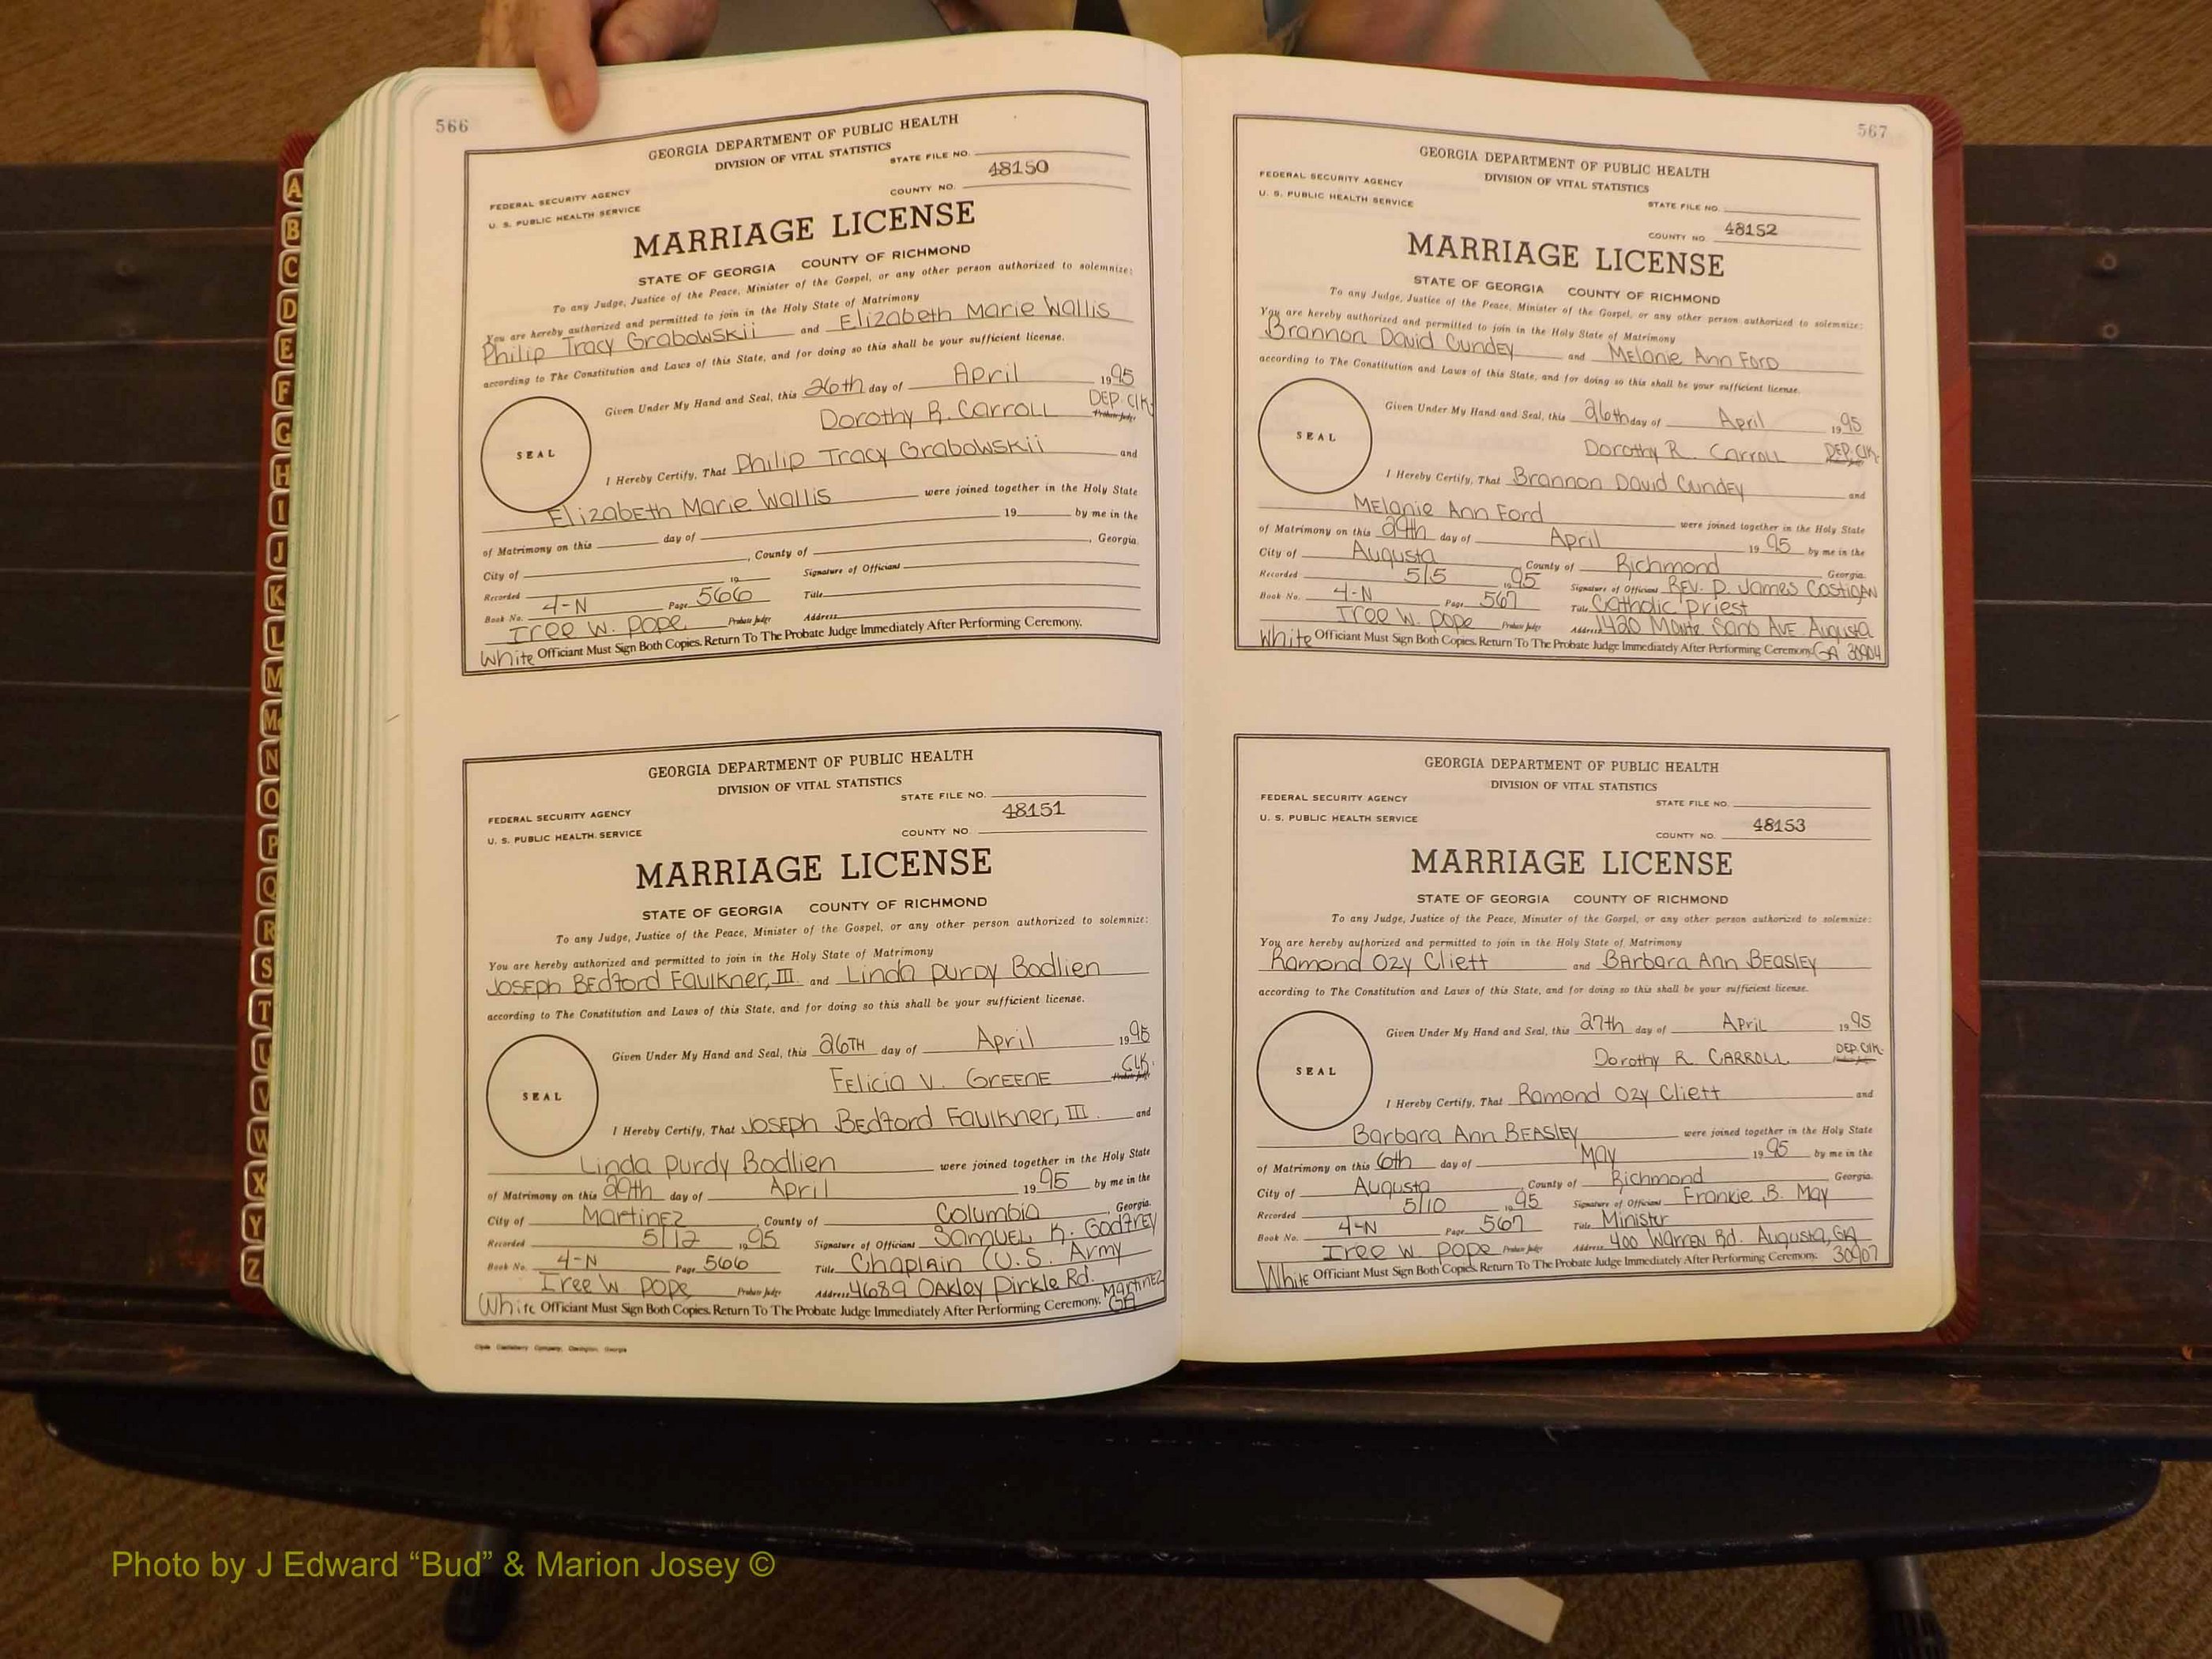 566
GEORGIA DEPARTMENT OF PUBLIC HEALTH
DIVISION OF VITAL STATISTICS
STATE FILE NO.
48150
FEDERAL SECURITY AGENCY
COUNTY NO.
U. S. PUBLIC HEALTH SERVICE
MARRIAGE LICENSE
STATE OF GEORGIA COUNTY OF RICHMOND
To any Judge, Justice of the Peace, Minister of the Gospel, or any other person authorized to solemnize:
You are hereby authorized and permitted to join in the Holy State of Matrimony
Philip Tracy Grabowskii and Elizabeth Marie Wallis
according to The Constitution and Laws of this State, and for doing so this shall be your sufficient license.
Given Under My Hand and Seal, this 26th day of April 1995
Dorothy R. Carroll DEP. Clk. Probate Judge
SEAL
I Hereby Certify, That Philip Tracy Grabowskii and
Elizabeth Marie Wallis were joined together in the Holy State
of Matrimony on this day of 19 by me in the
City of , County of , Georgia.
Recorded 19 Signature of Officiant
Book No. 4-N Page 566 Title
Iree W. Pope Probate Judge Address
White Officiant Must Sign Both Copies. Return To The Probate Judge Immediately After Performing Ceremony.
GEORGIA DEPARTMENT OF PUBLIC HEALTH
DIVISION OF VITAL STATISTICS
STATE FILE NO.
48151
FEDERAL SECURITY AGENCY
COUNTY NO.
U. S. PUBLIC HEALTH SERVICE
MARRIAGE LICENSE
STATE OF GEORGIA COUNTY OF RICHMOND
To any Judge, Justice of the Peace, Minister of the Gospel, or any other person authorized to solemnize:
You are hereby authorized and permitted to join in the Holy State of Matrimony
Joseph Bedford Faulkner, III and Linda Purdy Bodlien
according to The Constitution and Laws of this State, and for doing so this shall be your sufficient license.
Given Under My Hand and Seal, this 26TH day of April 1995
Felicia V. Greene Clk. Probate Judge
SEAL
I Hereby Certify, That Joseph Bedford Faulkner, III and
Linda Purdy Bodlien were joined together in the Holy State
of Matrimony on this 29th day of April 1995 by me in the
City of Martinez, County of Columbia, Georgia.
Recorded 5/12 1995 Signature of Officiant Samuel K. Godfrey
Book No. 4-N Page 566 Title Chaplain (U.S. Army
Iree W. Pope Probate Judge Address 4689 Oakley Pirkle Rd. Martinez
White Officiant Must Sign Both Copies. Return To The Probate Judge Immediately After Performing Ceremony. GA
567
GEORGIA DEPARTMENT OF PUBLIC HEALTH
DIVISION OF VITAL STATISTICS
FEDERAL SECURITY AGENCY
U. S. PUBLIC HEALTH SERVICE
STATE FILE NO.
COUNTY NO. 48152
MARRIAGE LICENSE
STATE OF GEORGIA COUNTY OF RICHMOND
To any Judge, Justice of the Peace, Minister of the Gospel, or any other person authorized to solemnize:
You are hereby authorized and permitted to join in the Holy State of Matrimony
Brannon David Cundey and Melanie Ann Ford
according to The Constitution and Laws of this State, and for doing so this shall be your sufficient license.
Given Under My Hand and Seal, this 26th day of April 1995
Dorothy R. Carroll DEP. Clk.
SEAL
I Hereby Certify, That Brannon David Cundey and
Melanie Ann Ford were joined together in the Holy State
of Matrimony on this 29th day of April 1995 by me in the
City of Augusta, County of Richmond Georgia.
Recorded 5/5 1995 Signature of Officiant Rev. D. James Costigan
Book No. 4-N Page 567 Title Catholic Priest
Iree W. Pope Probate Judge Address 1420 Monte Sano Ave Augusta
White Officiant Must Sign Both Copies. Return To The Probate Judge Immediately After Performing Ceremony. GA 30904
GEORGIA DEPARTMENT OF PUBLIC HEALTH
DIVISION OF VITAL STATISTICS
FEDERAL SECURITY AGENCY
STATE FILE NO.
U. S. PUBLIC HEALTH SERVICE
COUNTY NO. 48153
MARRIAGE LICENSE
STATE OF GEORGIA COUNTY OF RICHMOND
To any Judge, Justice of the Peace, Minister of the Gospel, or any other person authorized to solemnize:
You are hereby authorized and permitted to join in the Holy State of Matrimony
Ramond Ozy Cliett and Barbara Ann Beasley
according to The Constitution and Laws of this State, and for doing so this shall be your sufficient license.
Given Under My Hand and Seal, this 27th day of April 1995
Dorothy R. Carroll DEP. Clk.
SEAL
I Hereby Certify, That Ramond Ozy Cliett and
Barbara Ann Beasley were joined together in the Holy State
of Matrimony on this 6th day of May 1995 by me in the
City of Augusta, County of Richmond Georgia.
Recorded 5/10 1995 Signature of Officiant Frankie B. May
Book No. 4-N Page 567 Title Minister
Iree W. Pope Probate Judge Address 400 Warren Rd. Augusta, GA
White Officiant Must Sign Both Copies. Return To The Probate Judge Immediately After Performing Ceremony. 30907
A
B
C
D
E
F
G
H
I
J
K
L
M
Mc
N
O
P
Q
R
S
T
U
V
W
X
Y
Z
Photo by J Edward “Bud” & Marion Josey ©